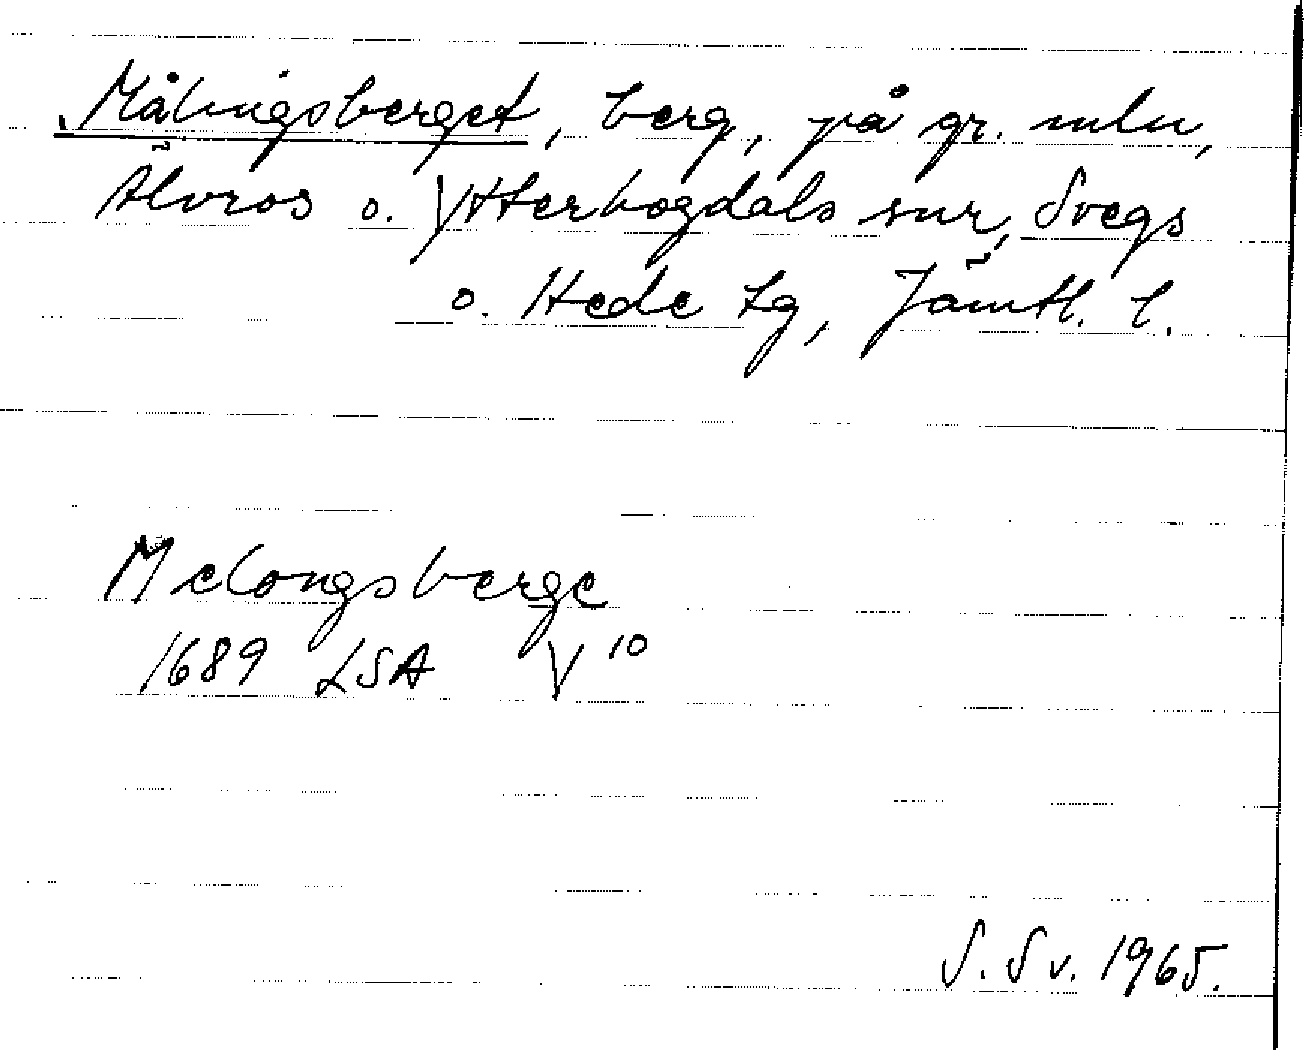 Målingsberget, berg, på gr. mln,
Älvros o. Ytterhogdals snr, Svegs
o. Hede tg, Jämtl. l.
Melongsberge
1689 LSA V 10
S. Sv. 1965.